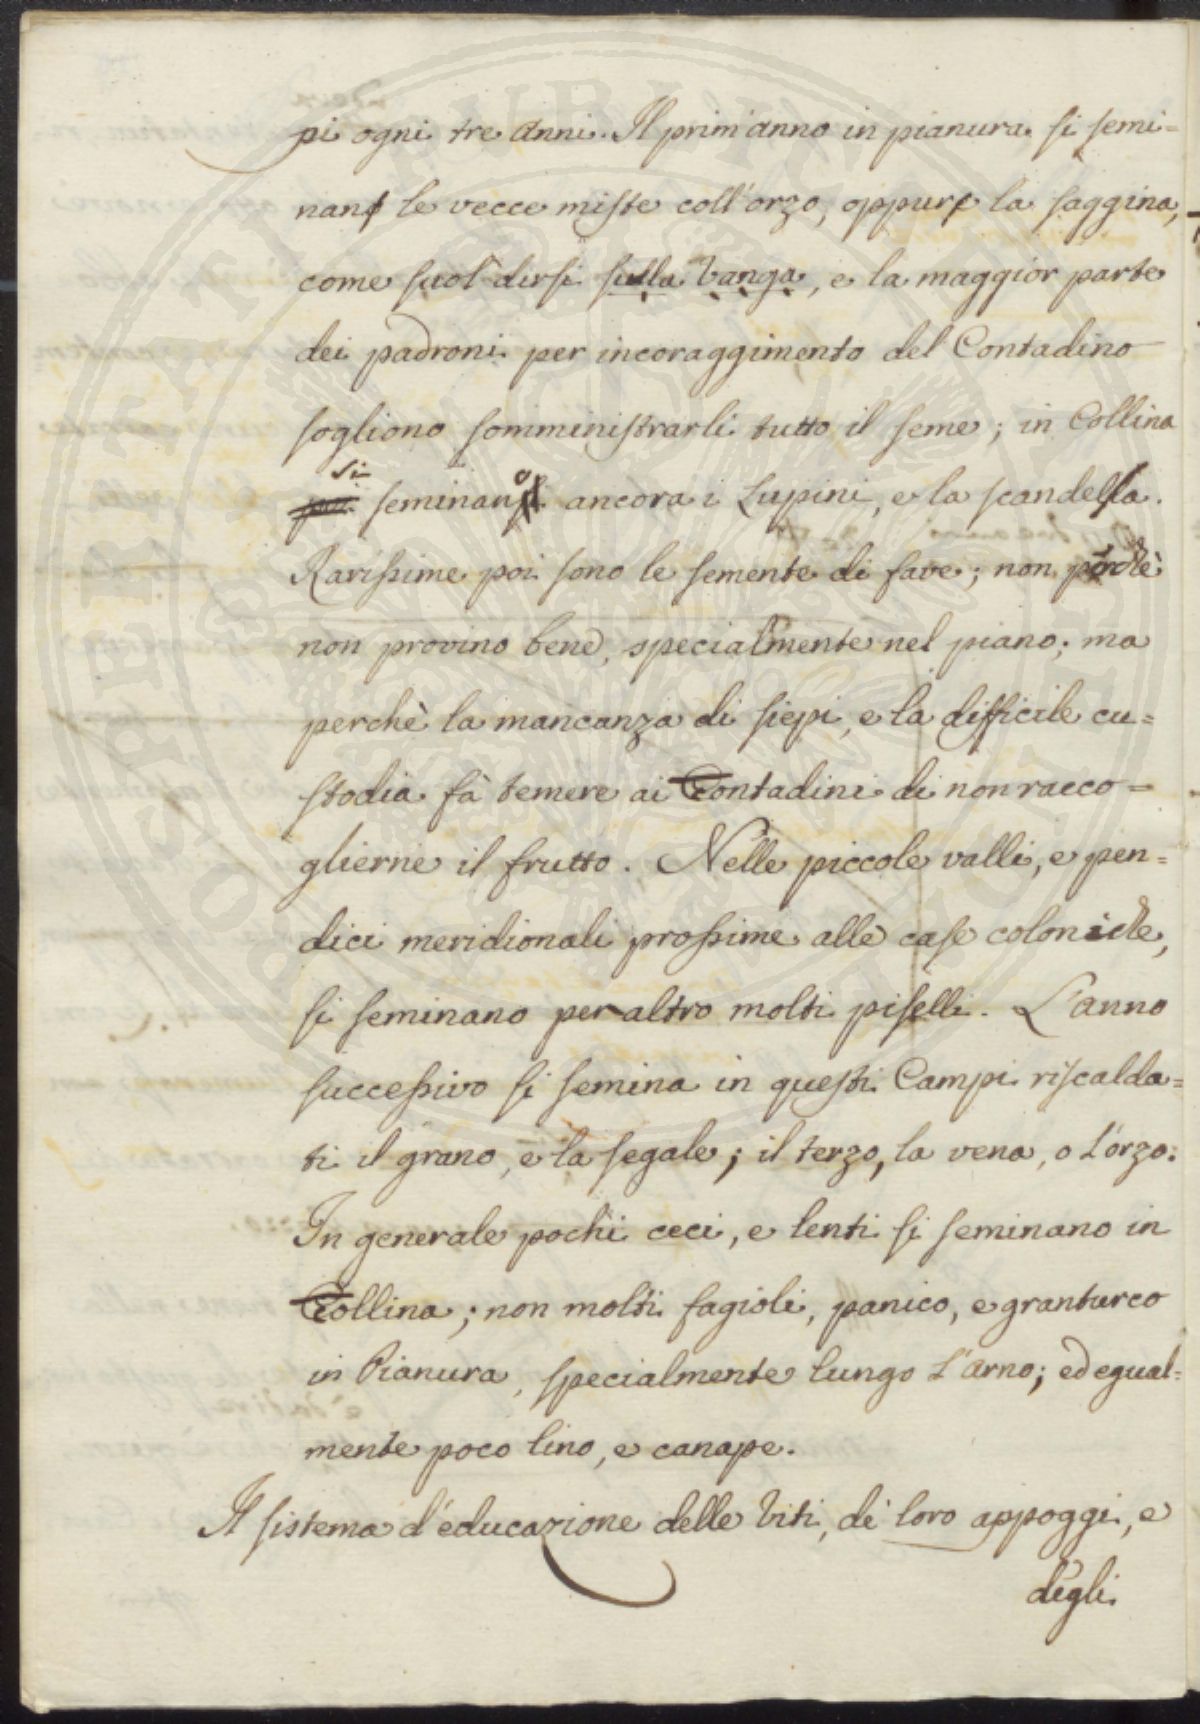 pi ogni tre anni. Il prim'anno in pianura si semi=
nano le vecce miste coll'orzo, oppure la saggina,
come suol dirsi sulla vanga, e la maggior parte
dei padroni per incoraggimento del Contadino
sogliono somministrarli tutto il seme; in Collina
si
seminano ancora i Lupini, e la scandella.
Rarissime poi sono le semente di fave; non perchè
non provino bene, specialmente nel piano; ma
perchè la mancanza di siepi, e la difficile cu=
stodia fà temere ai Contadini di non racco=
glierne il frutto. Nelle piccole valli, e pen=
dici meridionali prossime alle case coloniche,
si seminano per altro molti piselli. L'anno
successivo si semina in questi Campi riscalda=
ti il grano, e la segale; il terzo, la vena, o l'orzo.
In generale pochi ceci, e lenti si seminano in
Collina; non molti fagioli, panico, e granturco
in Pianura, specialmente lungo l'Arno; ed egual=
mente poco lino, e canape.
Il sistema d'educazione delle Viti, de' loro appoggi, e
degli
PUBLICAE